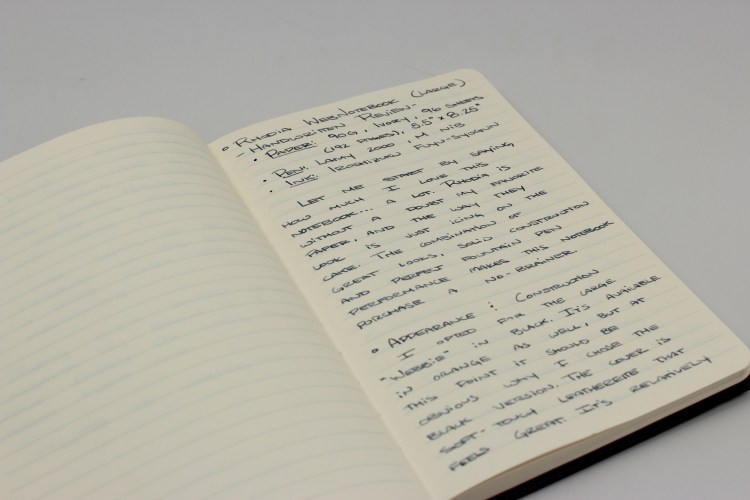 • RHODIA WEBNOTEBOOK (LARGE)
- HANDWRITTEN REVIEW -
• PAPER: 90G, IVORY, 96 SHEETS
(192 PAGES), 5.5" x 8.25"
• PEN: LAMY 2000, M NIB
• INK: IROSHIZUKU FUYU-SYOGUN
LET ME START BY SAYING
HOW MUCH I LOVE THIS
NOTEBOOK... A LOT. RHODIA IS
WITHOUT A DOUBT MY FAVORITE
PAPER, AND THE WAY THEY
LOOK IS JUST ICING ON THE
CAKE. THE COMBINATION OF
GREAT LOOKS, SOLID CONSTRUCTION
AND PERFECT FOUNTAIN PEN
PERFORMANCE MAKES THIS NOTEBOOK
PURCHASE A NO-BRAINER.
• APPEARANCE & CONSTRUCTION
I OPTED FOR THE LARGE
"WEBBIE" IN BLACK. IT'S AVAILABLE
IN ORANGE AS WELL, BUT AT
THIS POINT IT SHOULD BE
OBVIOUS WHY I CHOSE THE
BLACK VERSION. THE COVER IS
SOFT-TOUCH LEATHERETTE THAT
FEELS GREAT. IT'S RELATIVELY